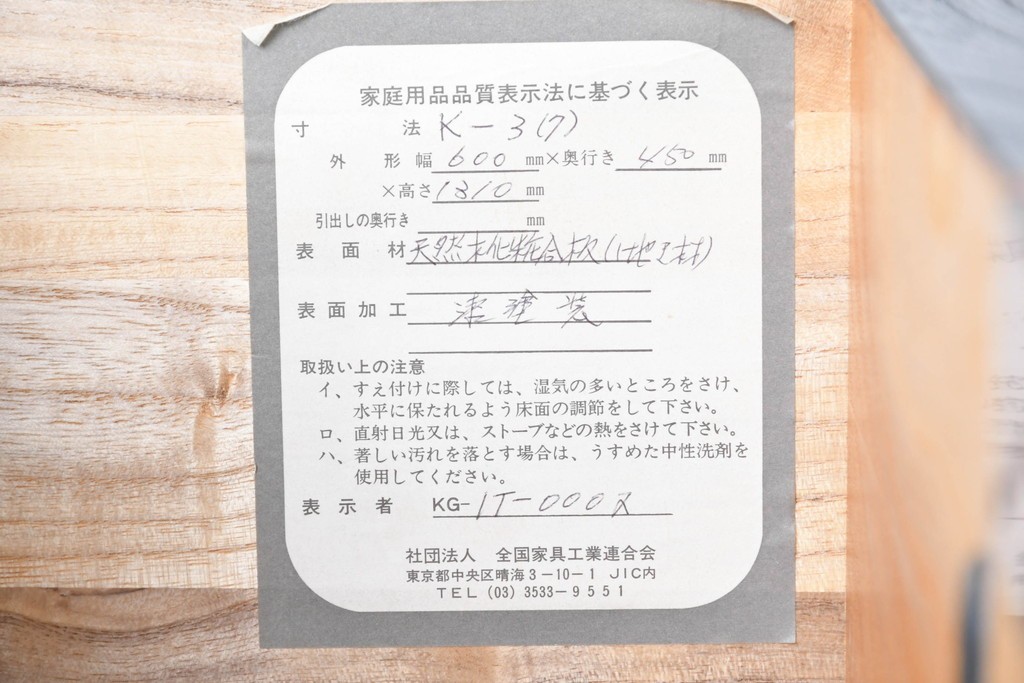 家庭用品品質表示法に基づく表示
寸法 K-3(7)
外形幅 600 mm×奥行き 450 mm
×高さ 1310 mm
引出しの奥行き mm
表面材 天然木化粧合板(地材)
表面加工 漆塗装
取扱い上の注意
イ、すえ付けに際しては、湿気の多いところをさけ、
水平に保たれるよう床面の調節をして下さい。
ロ、直射日光又は、ストーブなどの熱をさけて下さい。
ハ、著しい汚れを落とす場合は、うすめた中性洗剤を
使用してください。
表示者 KG-IT-0002
社団法人 全国家具工業連合会
東京都中央区晴海3-10-1 JIC内
TEL(03)3533-9551